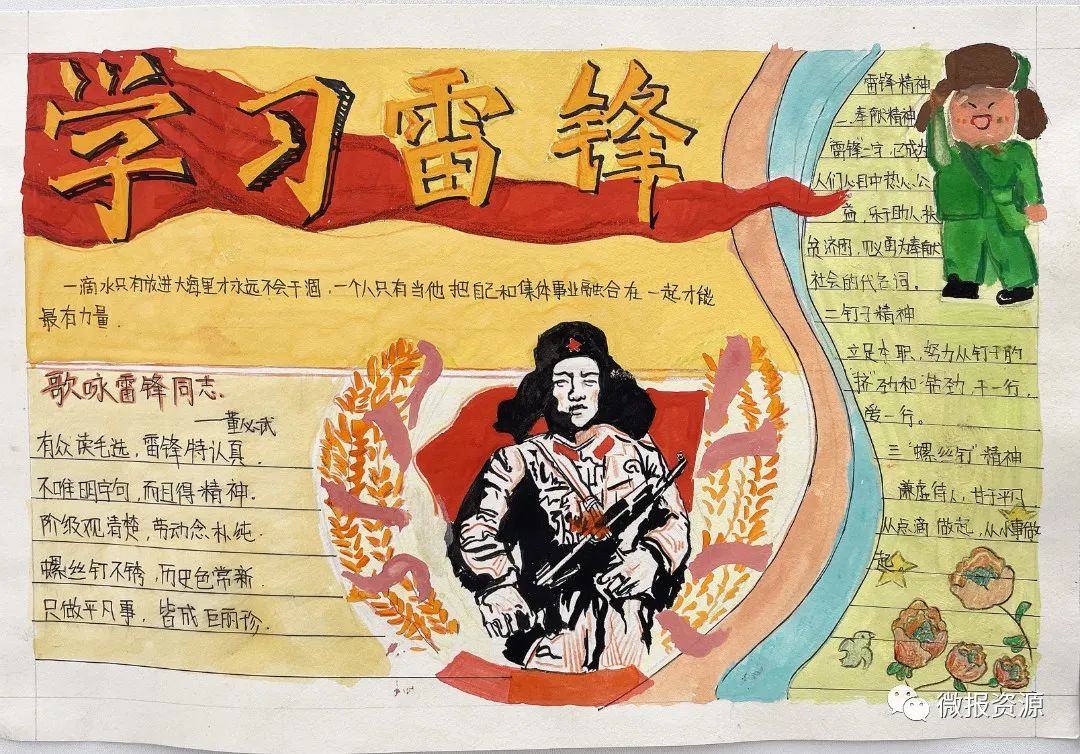 学习雷锋
一滴水只有放进大海里才永远不会干涸，一个人只有当他把自己和集体事业融合在一起才能
最有力量．
歌咏雷锋同志．
——董必武
有众读毛选，雷锋特认真．
不唯明字句，而且得精神．
阶级观清楚，劳动念朴纯．
螺丝钉不锈，历史色常新．
只做平凡事，皆成巨丽珍．
雷锋精神
一.奉献精神
雷锋一字，已成为
人们心目中热心公
益，乐于助人扶
贫济困，见义勇为奉献
社会的代名词。
二钉子精神
立足本职，努力从钉子的
"挤"劲和"钻"劲，干一行，
爱一行。
三"螺丝钉"精神
谦虚待人，甘于平凡
从点滴做起，从小事做
起
微报资源